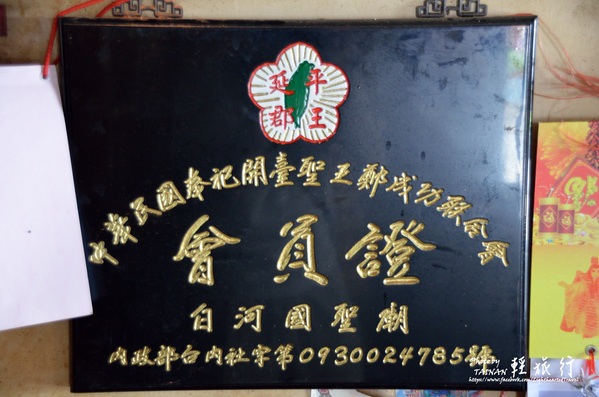 延平
郡王
中華民國奉祀開臺聖王鄭成功聯合會
會員證
白河國聖廟
內政部台內社字第0930024785號
TAINAN 輕旅行